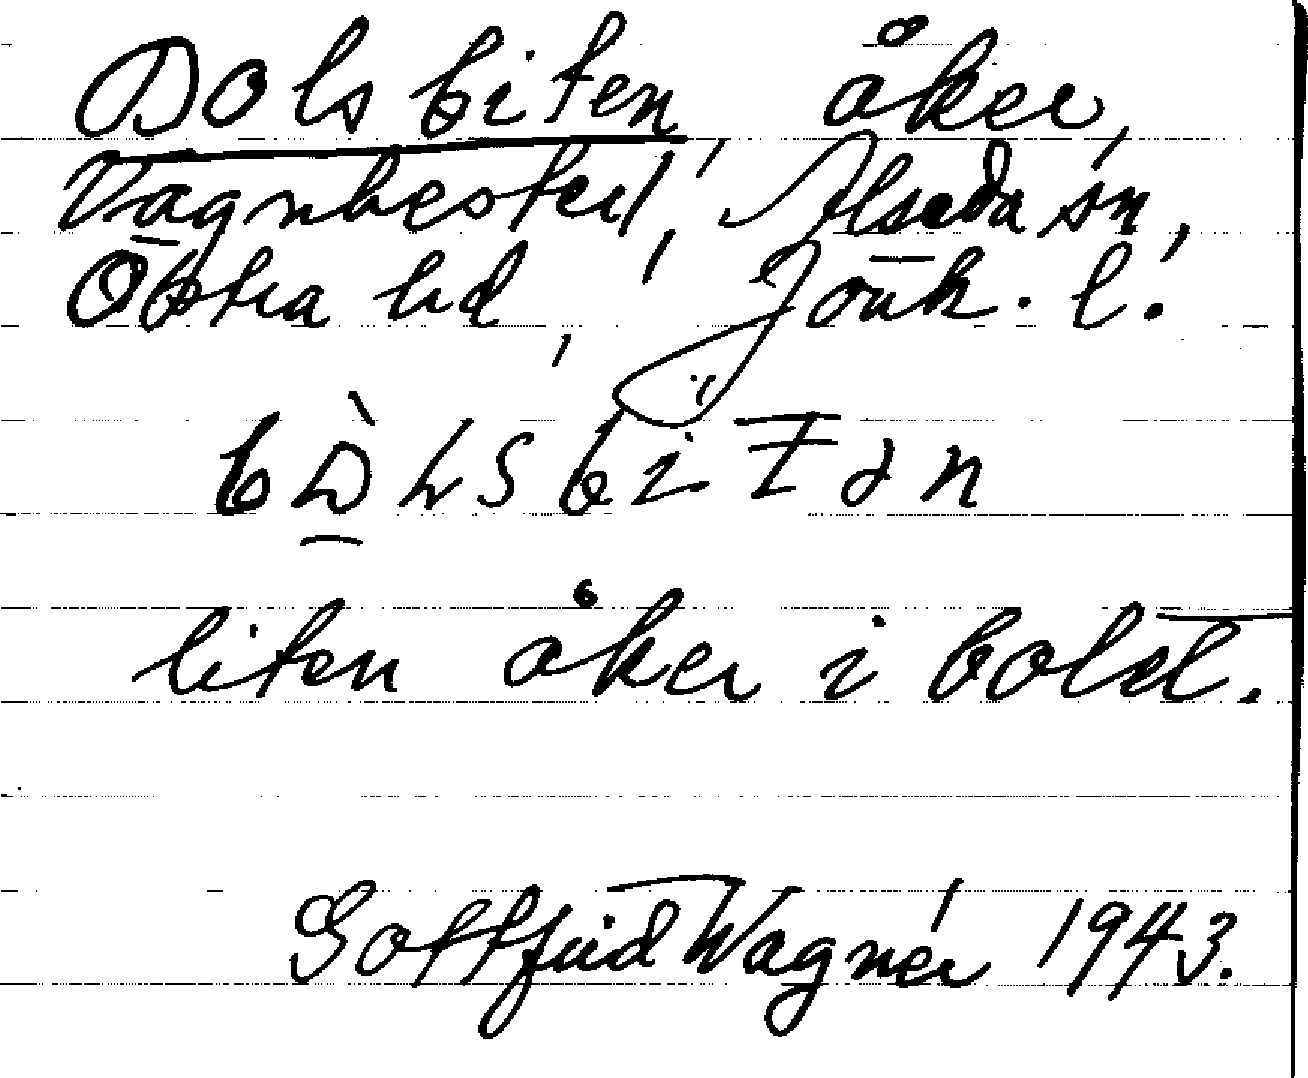 Dolsbiten åker,
Vagnhester, Alseda sn,
Östra hd, Jönk. l.
liten åker i bolet.
Gottfrid Wagnér 1943.